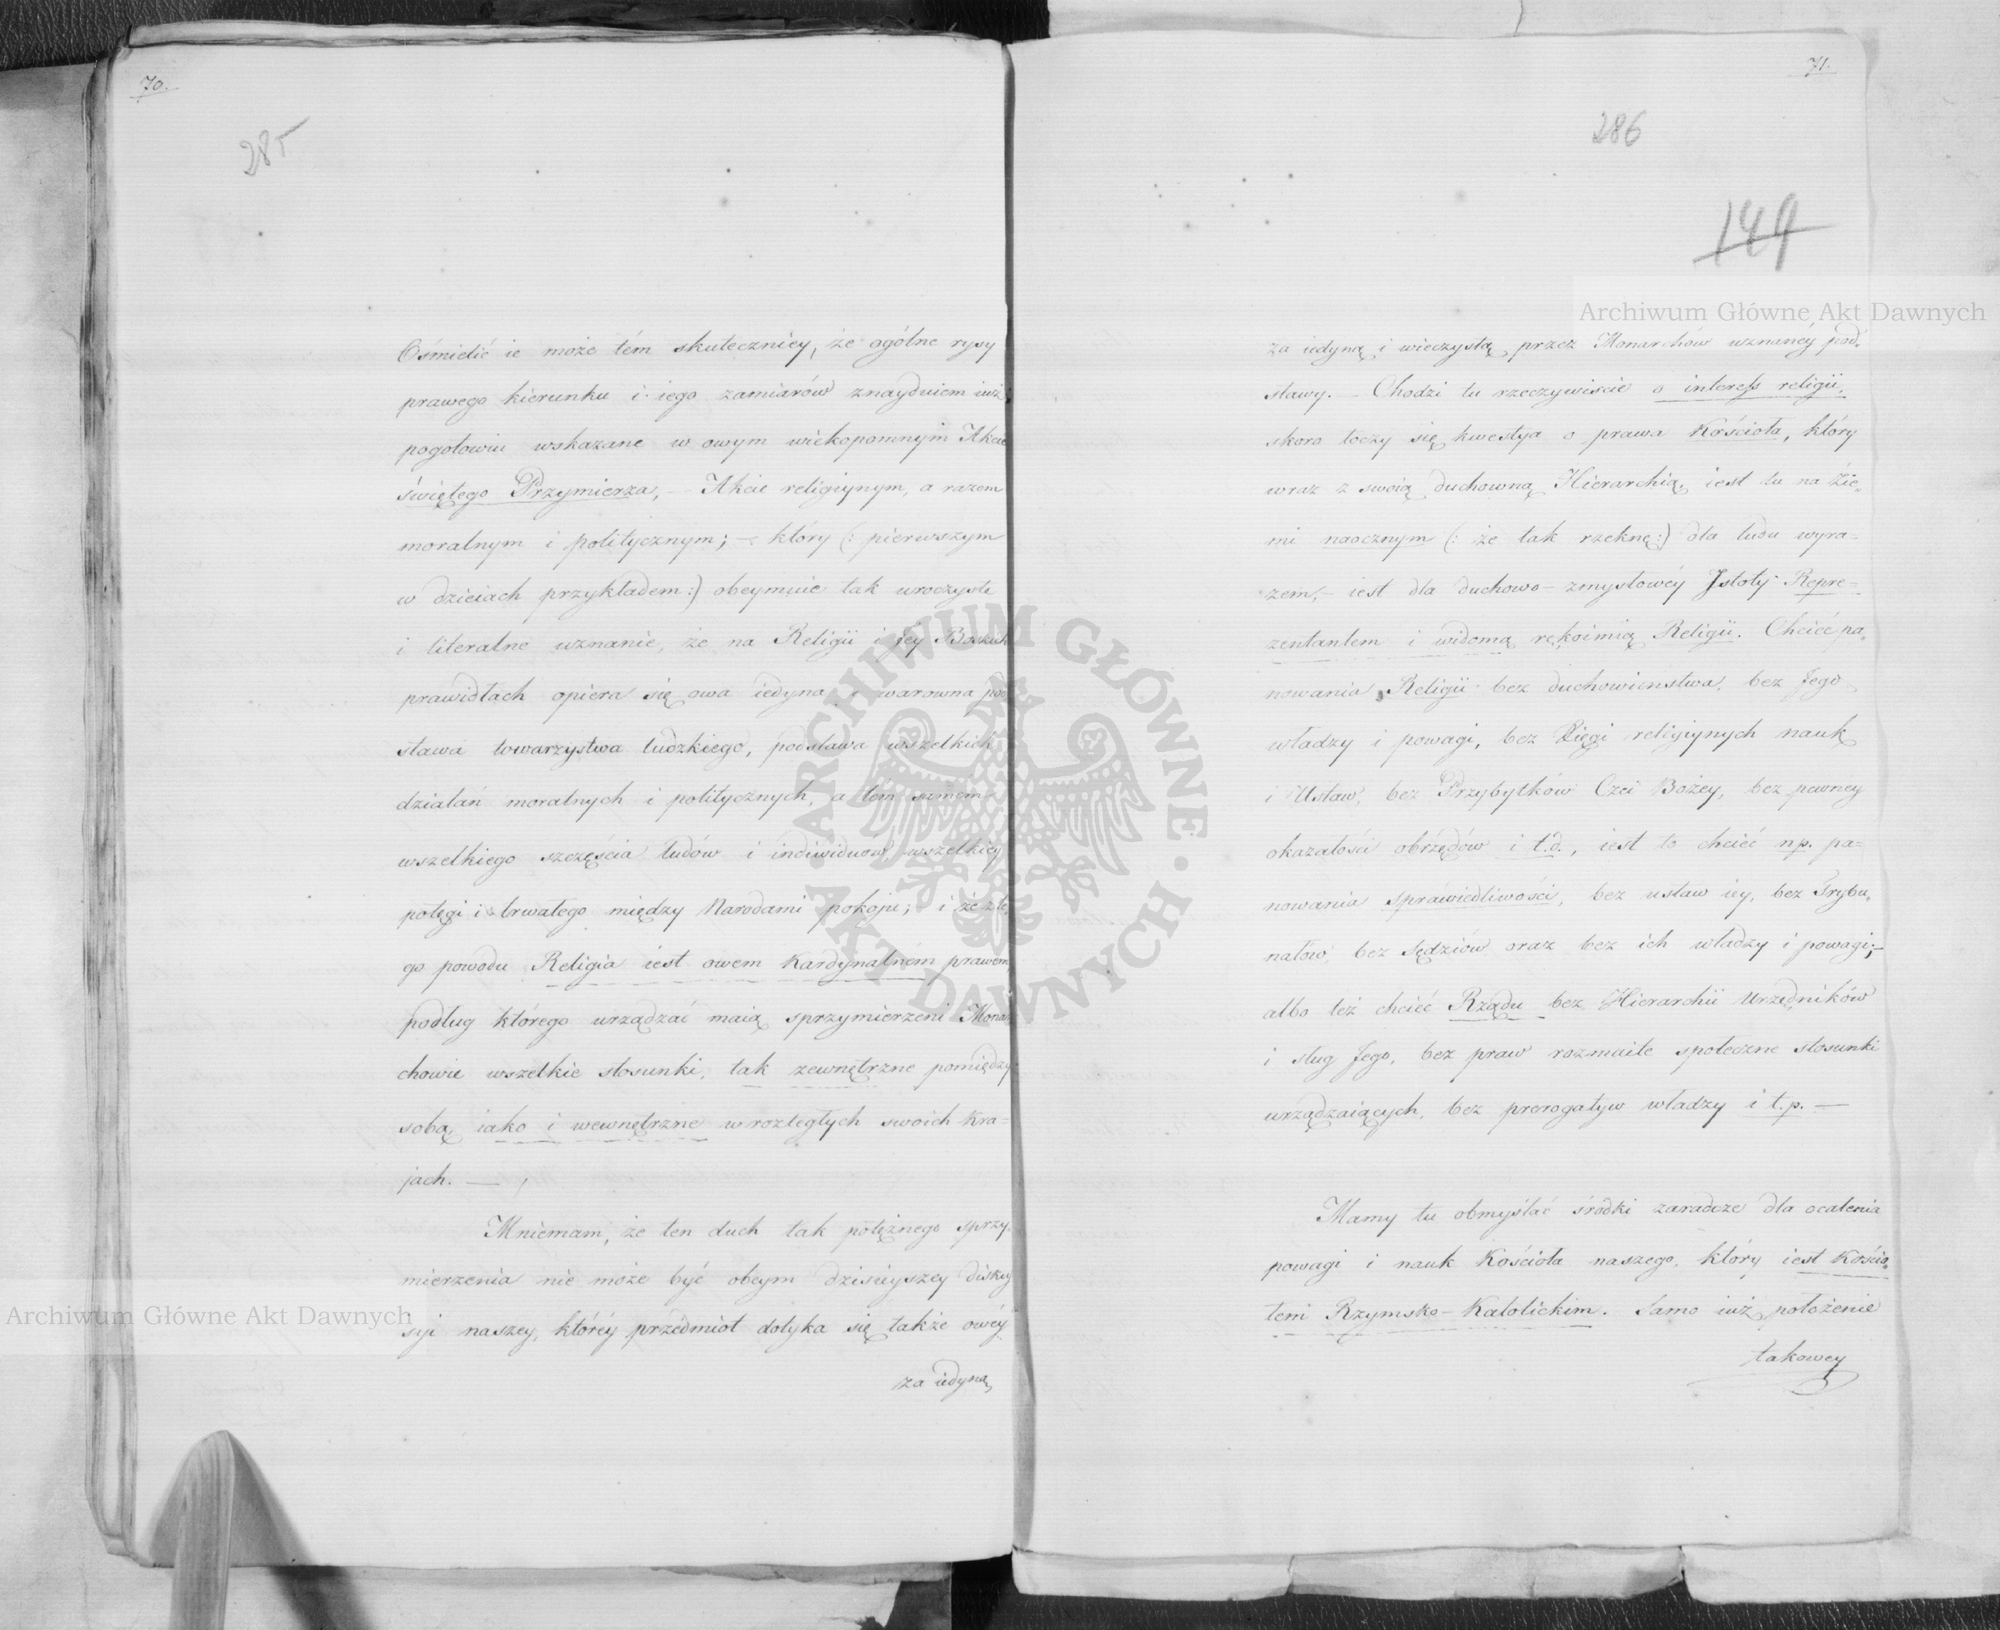 70.
285
Ośmielić ie może tém skuteczniey, że ogólne rysy
prawego kierunku i iego zamiarów znayduiem iuż
pogotowiu wskazane w owym wiekopomnym Akcie
świętego Przymierza, — Akcie religiynym, a razem
moralnym i politycznym; — który (: pierwszym
w dzieiach przykładem :) obeymuie tak uroczyste
i literalne uznanie, że na Religii i jey Boskich
prawidłach opiera się owa iedyna i warowna pod
stawa towarzystwa ludzkiego, podstawa wszelkich
działań moralnych i politycznych, a tém samem
wszelkiego szczęścia ludów i indiwiduów, wszelkiey
potęgi i trwałego między Narodami pokoju; i że z te
go powodu Religia iest owem Kardynalném prawem,
podług którego urządzać maią sprzymierzeni Monar
chowie wszelkie stosunki, tak zewnętrzne pomiędzy
sobą, iako i wewnętrzne w rozległych swoich Kra-
jach. —
Mniemam, że ten duch tak potężnego sprzy-
mierzenia nie może być obcym dzisieyszey disku
syi naszey, któréy przedmiot dotyka się także owéy
za iedyną
71.
286
144
Archiwum Główne Akt Dawnych
za iedyną i wieczystą przez Monarchów uznanéy pod-
stawy. — Chodzi tu rzeczywiście o interess religii,
skoro toczy się kwestya o prawa Kościoła, który
wraz z swoią duchowną Hierarchią, iest tu na Zie-
mi naocznym (: że tak rzeknę :) dla ludu wyra-
zem, — iest dla duchowo-zmysłowéy Istoty Repre-
zentantem i widomą rękoimią Religii. Chcieć pa-
nowania Religii bez duchowieństwa, bez Jego
władzy i powagi, bez Xięgi religiynych nauk
i Ustaw, bez Przybytków Czci Bożey, bez pewney
okazałości obrzędów i t.d., iest to chcieć np. pa-
nowania sprawiedliwości, bez ustaw iey, bez Trybu-
nałów, bez sędziów oraz bez ich władzy i powagi; —
albo też chcieć Rządu bez Hierarchii Urzędników
i sług Jego, bez praw rozmaite społeczne stosunki
urządzaiących, bez prerogatyw władzy i t.p. —
Mamy tu obmyślać środki zaradcze dla ocalenia
powagi i nauk Kościoła naszego, który iest Kościo-
łem Rzymsko-Katolickim. Samo iuż położenie
takowey
Archiwum Główne Akt Dawnych
ARCHIWUM GŁÓWNE · AKT DAWNYCH ·